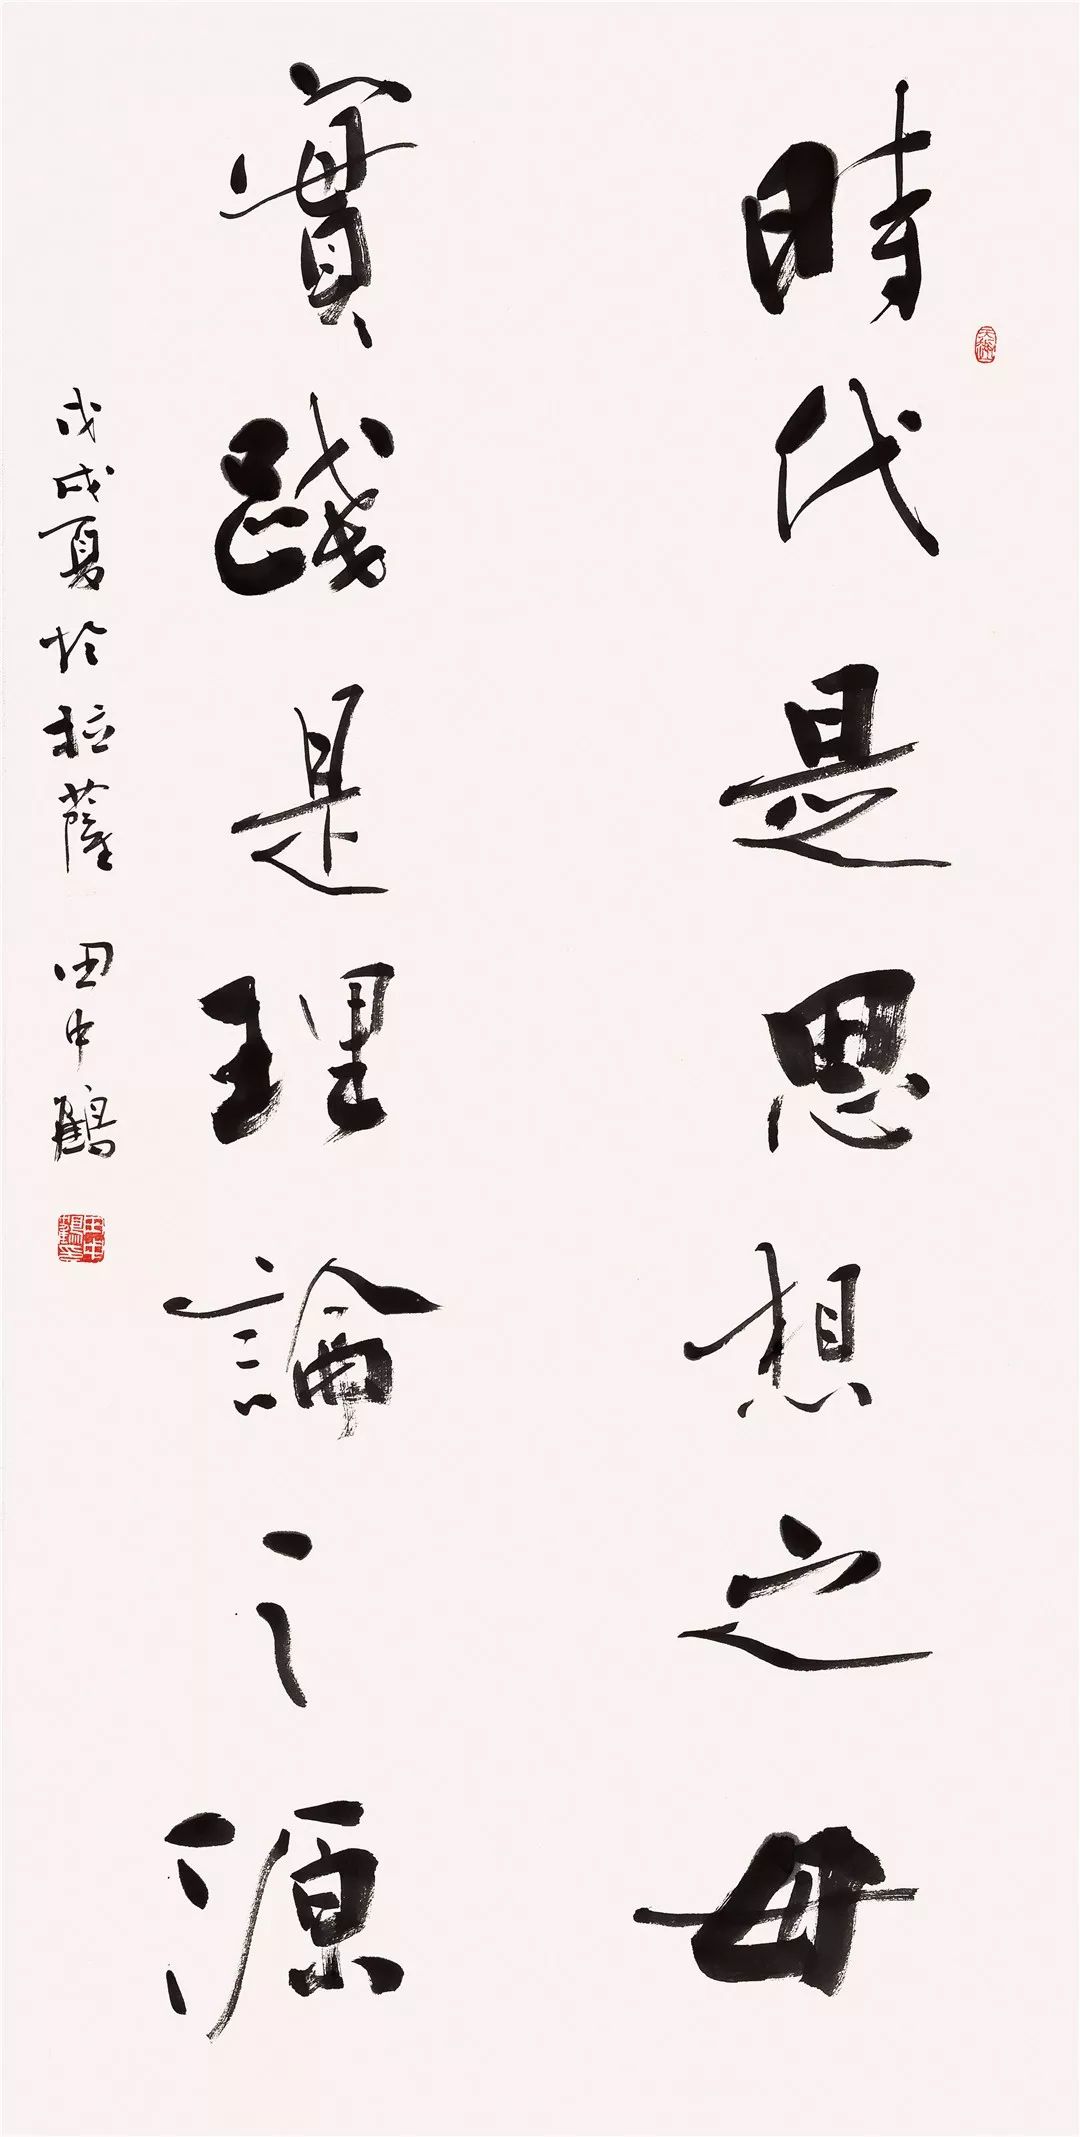 時代是思想之母
實踐是理論之源
戊戌夏於拉薩 田中鶴